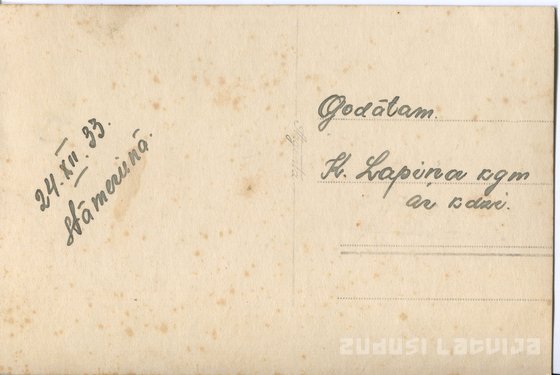 24.XII.33.
Stāmerienā.
Godātam.
K. Lapiņa kgm
ar kdzi.
zudusi Latvija